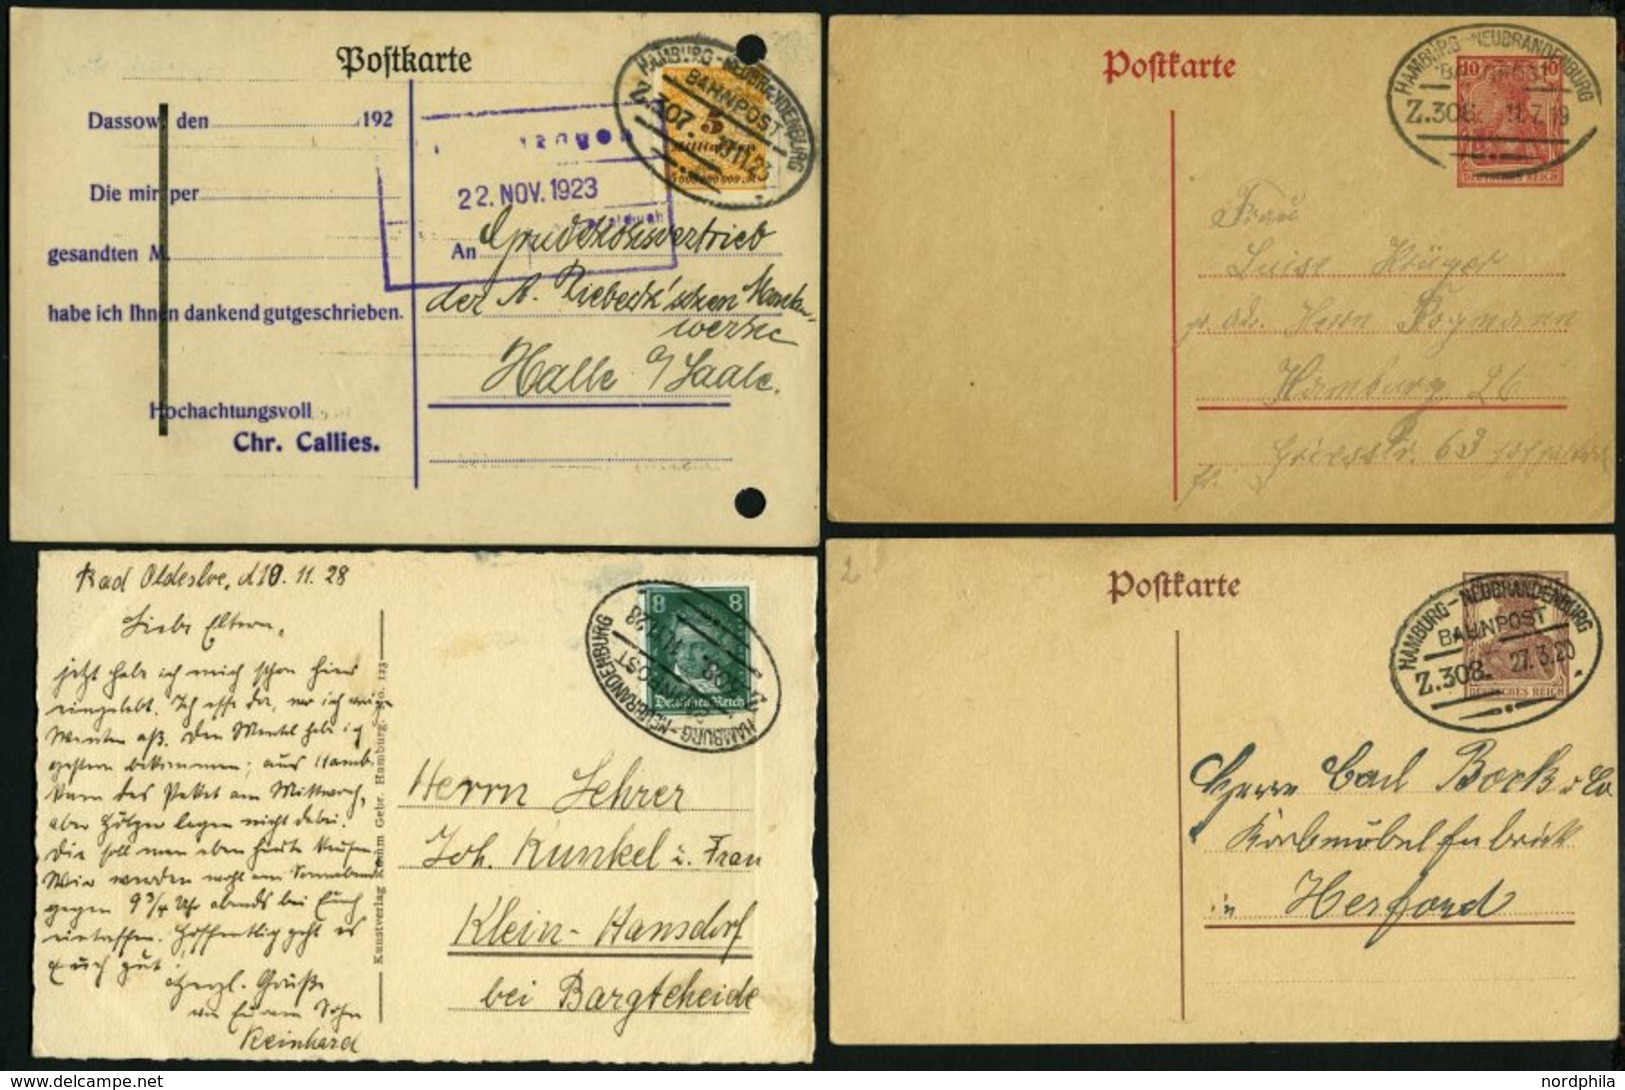 Postkarte
HAMBURG-NEUBRANDENBURG
BAHNPOST
Z.307. 19.11.23
5
Dassow, den 192
22. NOV. 1923
Die mir per
gesandten M.
habe ich Ihnen dankend gutgeschrieben.
Hochachtungsvoll
Chr. Callies.
An Grudekoksvertrieb
der A. Riebeck'schen Montan-
werke
Halle a/Saale.
Postkarte
10 10
DEUTSCHES REICH
HAMBURG-NEUBRANDENBURG
BAHNPOST
Z.308. 11.7.19
Frau
Luise Krüger
pr. Adr. Herrn
Hamburg 26
Griesstr. 63
Bad Oldesloe, d. 10. 11. 28
Liebe Eltern,
jetzt habe ich mich schon hier
eingelebt. Ich esse da, wo ich
aß. Den Mantel habe ich
gestern bekommen; aus Hamb.
kam das Paket am Mittwoch,
aber lagen nicht dabei.
Die soll man eben heute kaufen.
Wir werden wohl am Sonnabend
gegen 9 3/4 Uhr abends bei Euch
eintreffen. Hoffentlich geht es
Euch gut.
Herzl. Grüße
von Eurem Sohn
Reinhard
Kunstverlag Gebr. Hamburg. No. 123
8 8
Deutsches Reich
HAMBURG-NEUBRANDENBURG
BAHNPOST
Herrn Lehrer
Joh. Kunkel u. Frau
Klein-Hansdorf
bei Bargteheide
Postkarte
DEUTSCHES REICH
HAMBURG-NEUBRANDENBURG
BAHNPOST
Z.308. 27.3.20
2
Herren Carl Bock & Co
Korbmöbelfabrik
in Herford
nordphila